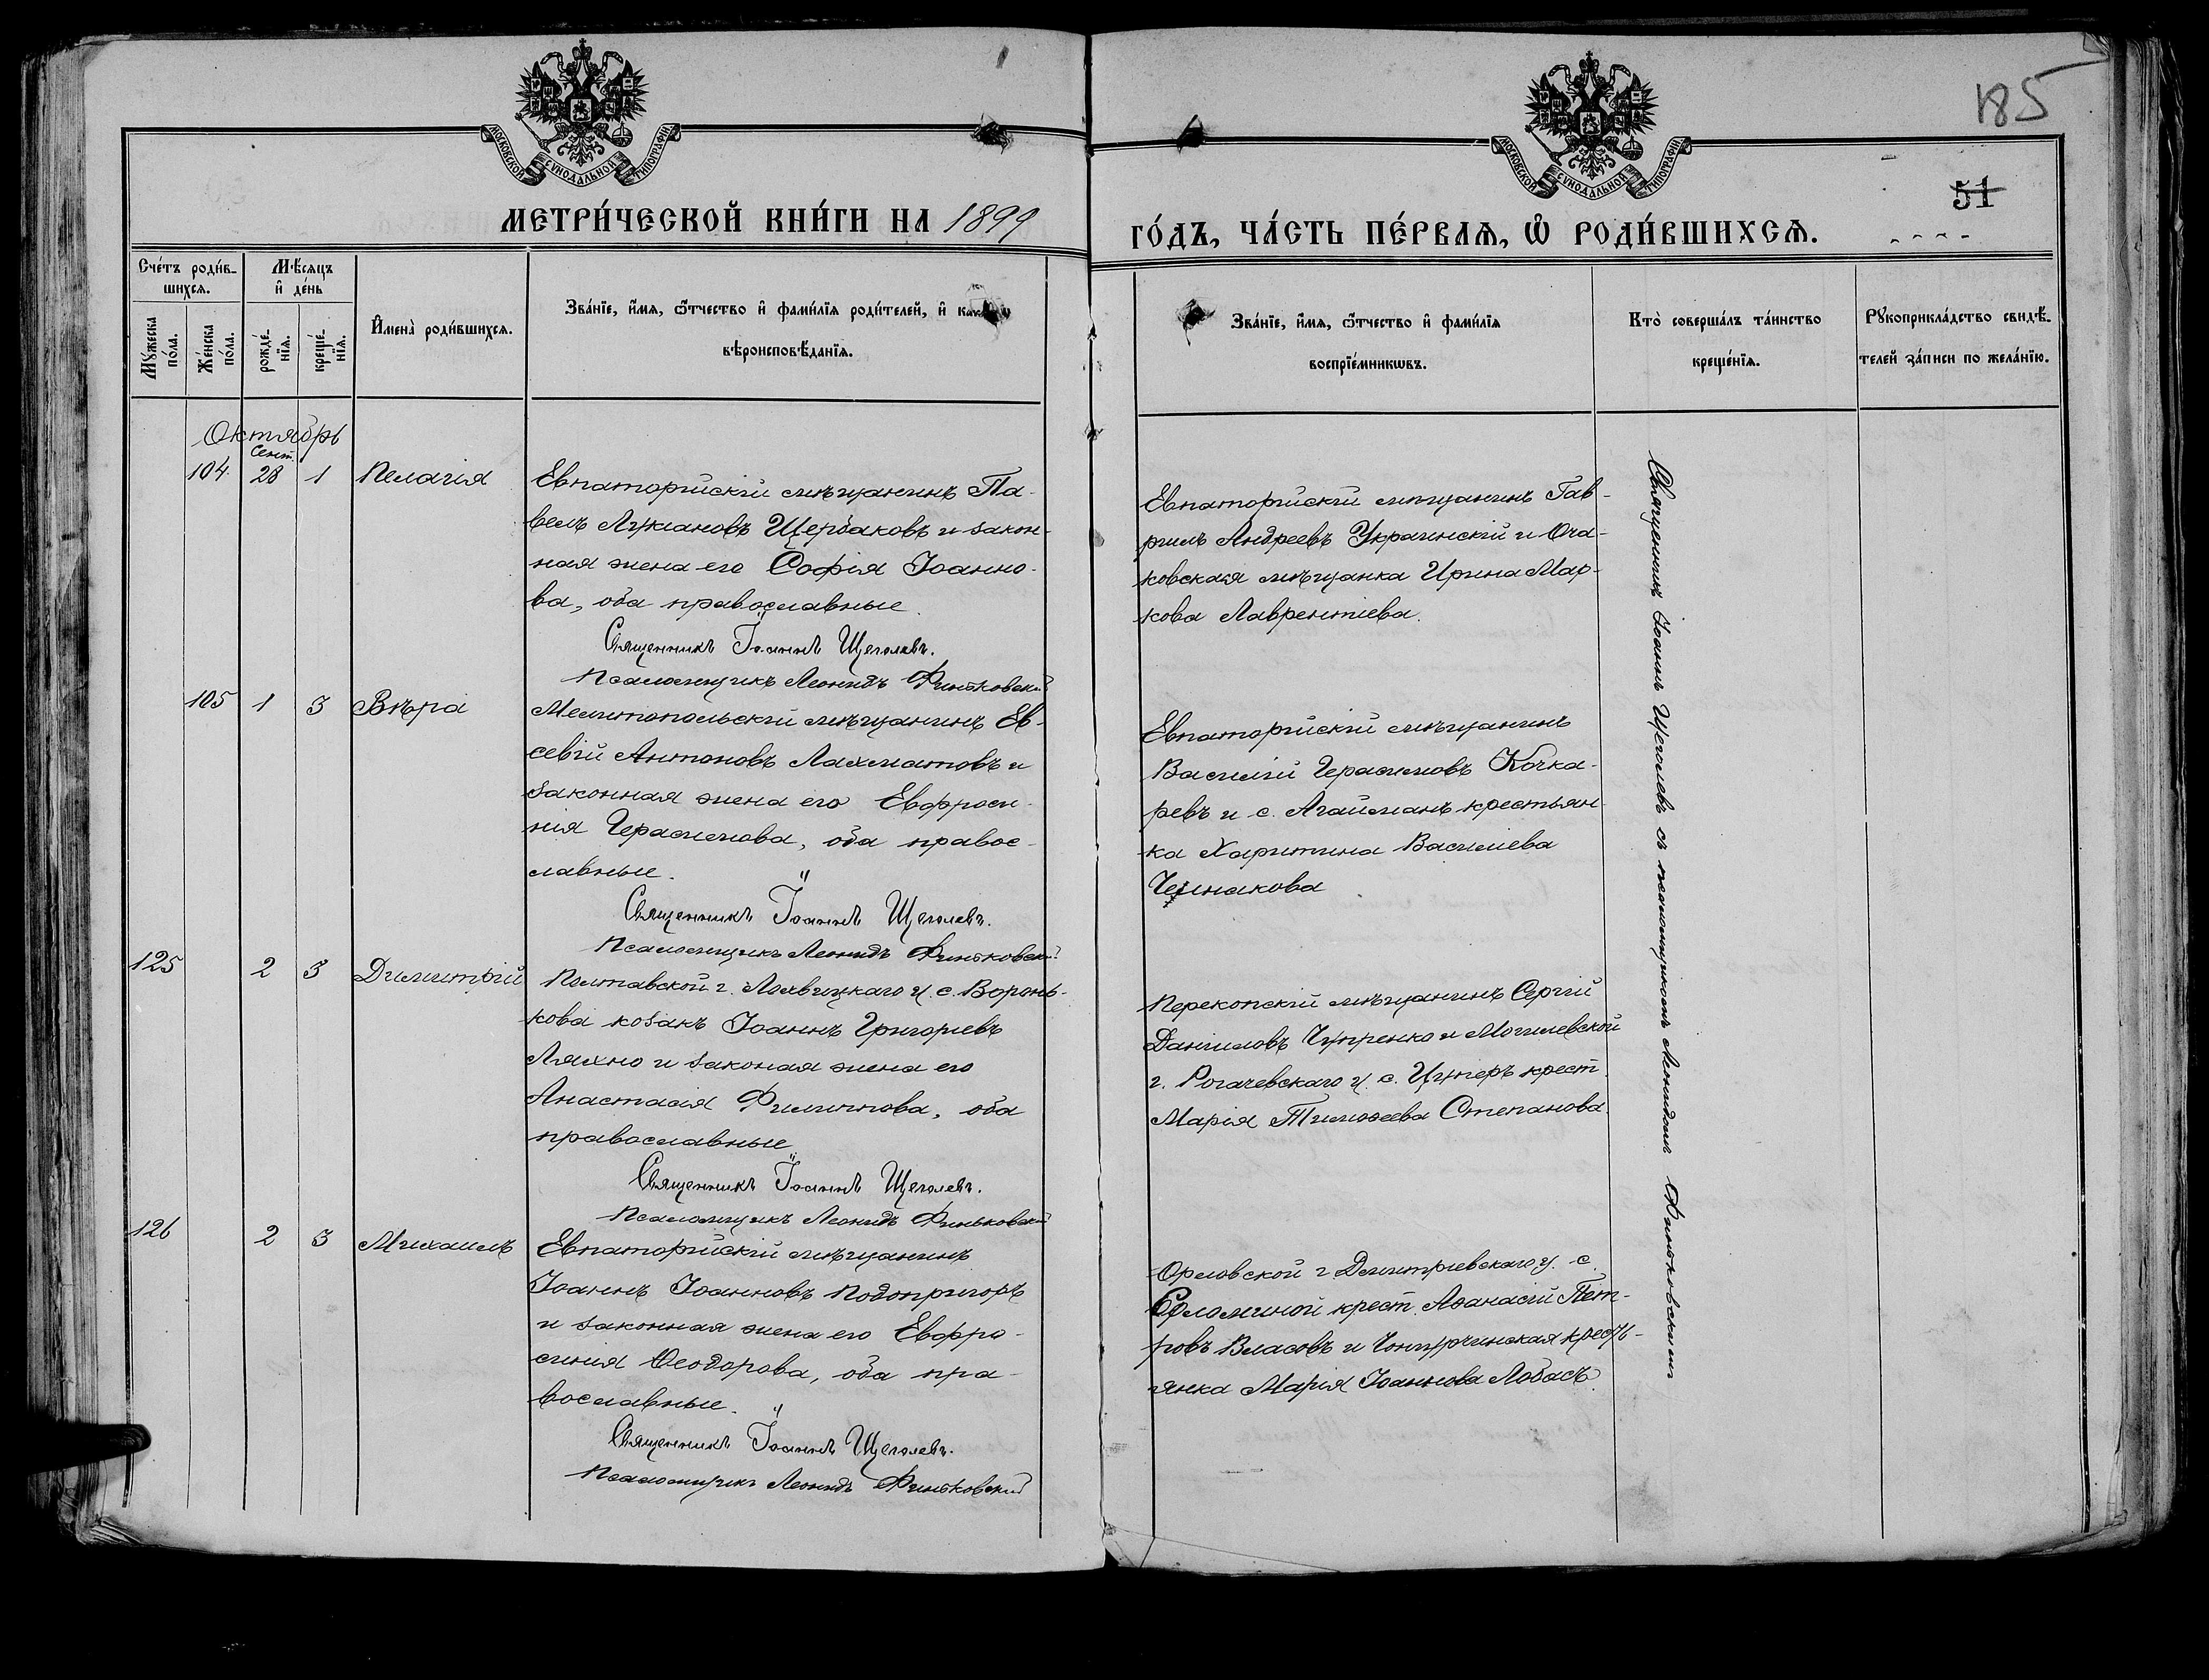 185
51
МОСКОВСКОЙ СѴНОДАЛЬНОЙ ТИПОГРАФІИ
МОСКОВСКОЙ СѴНОДАЛЬНОЙ ТИПОГРАФІИ
МЕТРИ́ЧЕСКОЙ КНИ́ГИ НА 1899
ГО́ДЪ, ЧА́СТЬ ПЕ́РВАѦ, Ѡ РОДИ́ВШИХСѦ.
Сче́тъ роди́в-
шихсѧ.
Мѣ́сяцъ
и҆ де́нь
Мꙋ́жеска
по́ла.
Же́нска
по́ла.
рожде́-
нїѧ.
креще́-
нїѧ.
И҆мена̀ роди́вшихсѧ.
Зва́нїе, и҆́мѧ, ѻ҆́тчество и҆ фами́лїѧ роди́телей, и҆
вѣроисповѣ́данїѧ.
Зва́нїе, и҆́мѧ, ѻ҆́тчество и҆ фами́лїѧ
воспрїе́мникѡвъ.
Кто̀ соверша́лъ та́инство
креще́нїѧ.
Рꙋкоприкла́дство свидѣ́-
телей за́писи по жела́нїю.
Октябрь
Сент.
104. 28 1 Пелагія
Евпаторійскій мѣщанинъ Па-
велъ Лукіановъ Щербаковъ и закон-
ная жена его Софія Іоанно-
ва, оба православные.
Священникъ Іоаннъ Щеголевъ.
Псаломщикъ Леонидъ Финьковскій
Евпаторійскій мѣщанинъ Гав-
ріилъ Андреевъ Украинскій и Оча-
ковская мѣщанка Ирина Мар-
кова Лаврентіева.
105 1 3 Вѣра
Мелитопольскій мѣщанинъ Ев-
севій Антоновъ Лахматовъ и
законная жена его Евфроси-
нія Герасимова, оба правос-
лавные.
Священникъ Іоаннъ Щеголевъ.
Псаломщикъ Леонидъ Финьковскій
Евпаторійскій мѣщанинъ
Василій Герасимовъ Кочка-
ревъ и с. Агайманъ крестьян-
ка Харитина Василіева
125 2 3 Димитрій
Полтавской г. Лохвицкаго у. с. Воронь-
кова козакъ Іоаннъ Григоріевъ
Ляхно и законая жена его
Анастасія Филиппова, оба
православные
Священникъ Іоаннъ Щеголевъ.
Псаломщикъ Леонидъ Финьковскій
Перекопскій мѣщанинъ Сергій
Даніиловъ Чупренко и Могилевской
г. Рогачевскаго у. с. Цуперъ крест.
Марія Тимоѳеева Степанова.
126 2 3 Михаилъ
Евпаторійскій мѣщанинъ
Іоаннъ Іоанновъ Подопригоръ
и законная жена его Евфро-
синія Ѳеодорова, оба пра-
вославные.
Священникъ Іоаннъ Щеголевъ.
Псаломщикъ Леонидъ Финьковскій
Орловской г. Димитріевскаго у. с.
Соломиной крест. Аѳанасій Пет-
ровъ Власовъ и крестья-
янка Марія Іоаннова Лобасъ.
Священникъ Іоаннъ Щеголевъ съ псаломщикомъ Леонидомъ Финьковскимъ